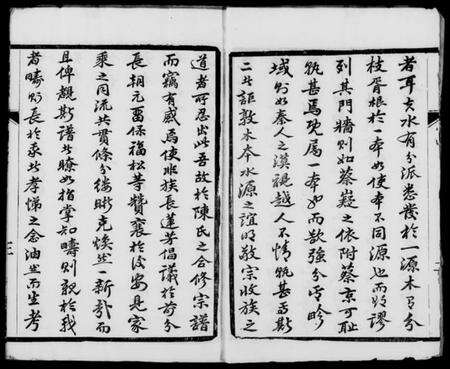 者耳夫水有分派悉幾於一源木之有分
枝胥根於一本如使本不同源也而好謬
到其門牆則如蔡嶷之依附蔡京可恥
孰甚焉況屬一本如而故強分畛
域則如秦人之漠視越人不情孰甚焉斯
二者詎敦木本水源之誼明敬宗收族之
道者所忍出此吾故於陳氏之合修宗譜
而竊有感焉使非族長蓮芳倡議於前分
長朝元冒保福松等贊襄於後安見家
乘之同流共貫條分縷晰克煥然一新於而
且俾觀斯譜者瞭如指掌知疇則親於我
者疇則長於我者孝悌之念油然而生考